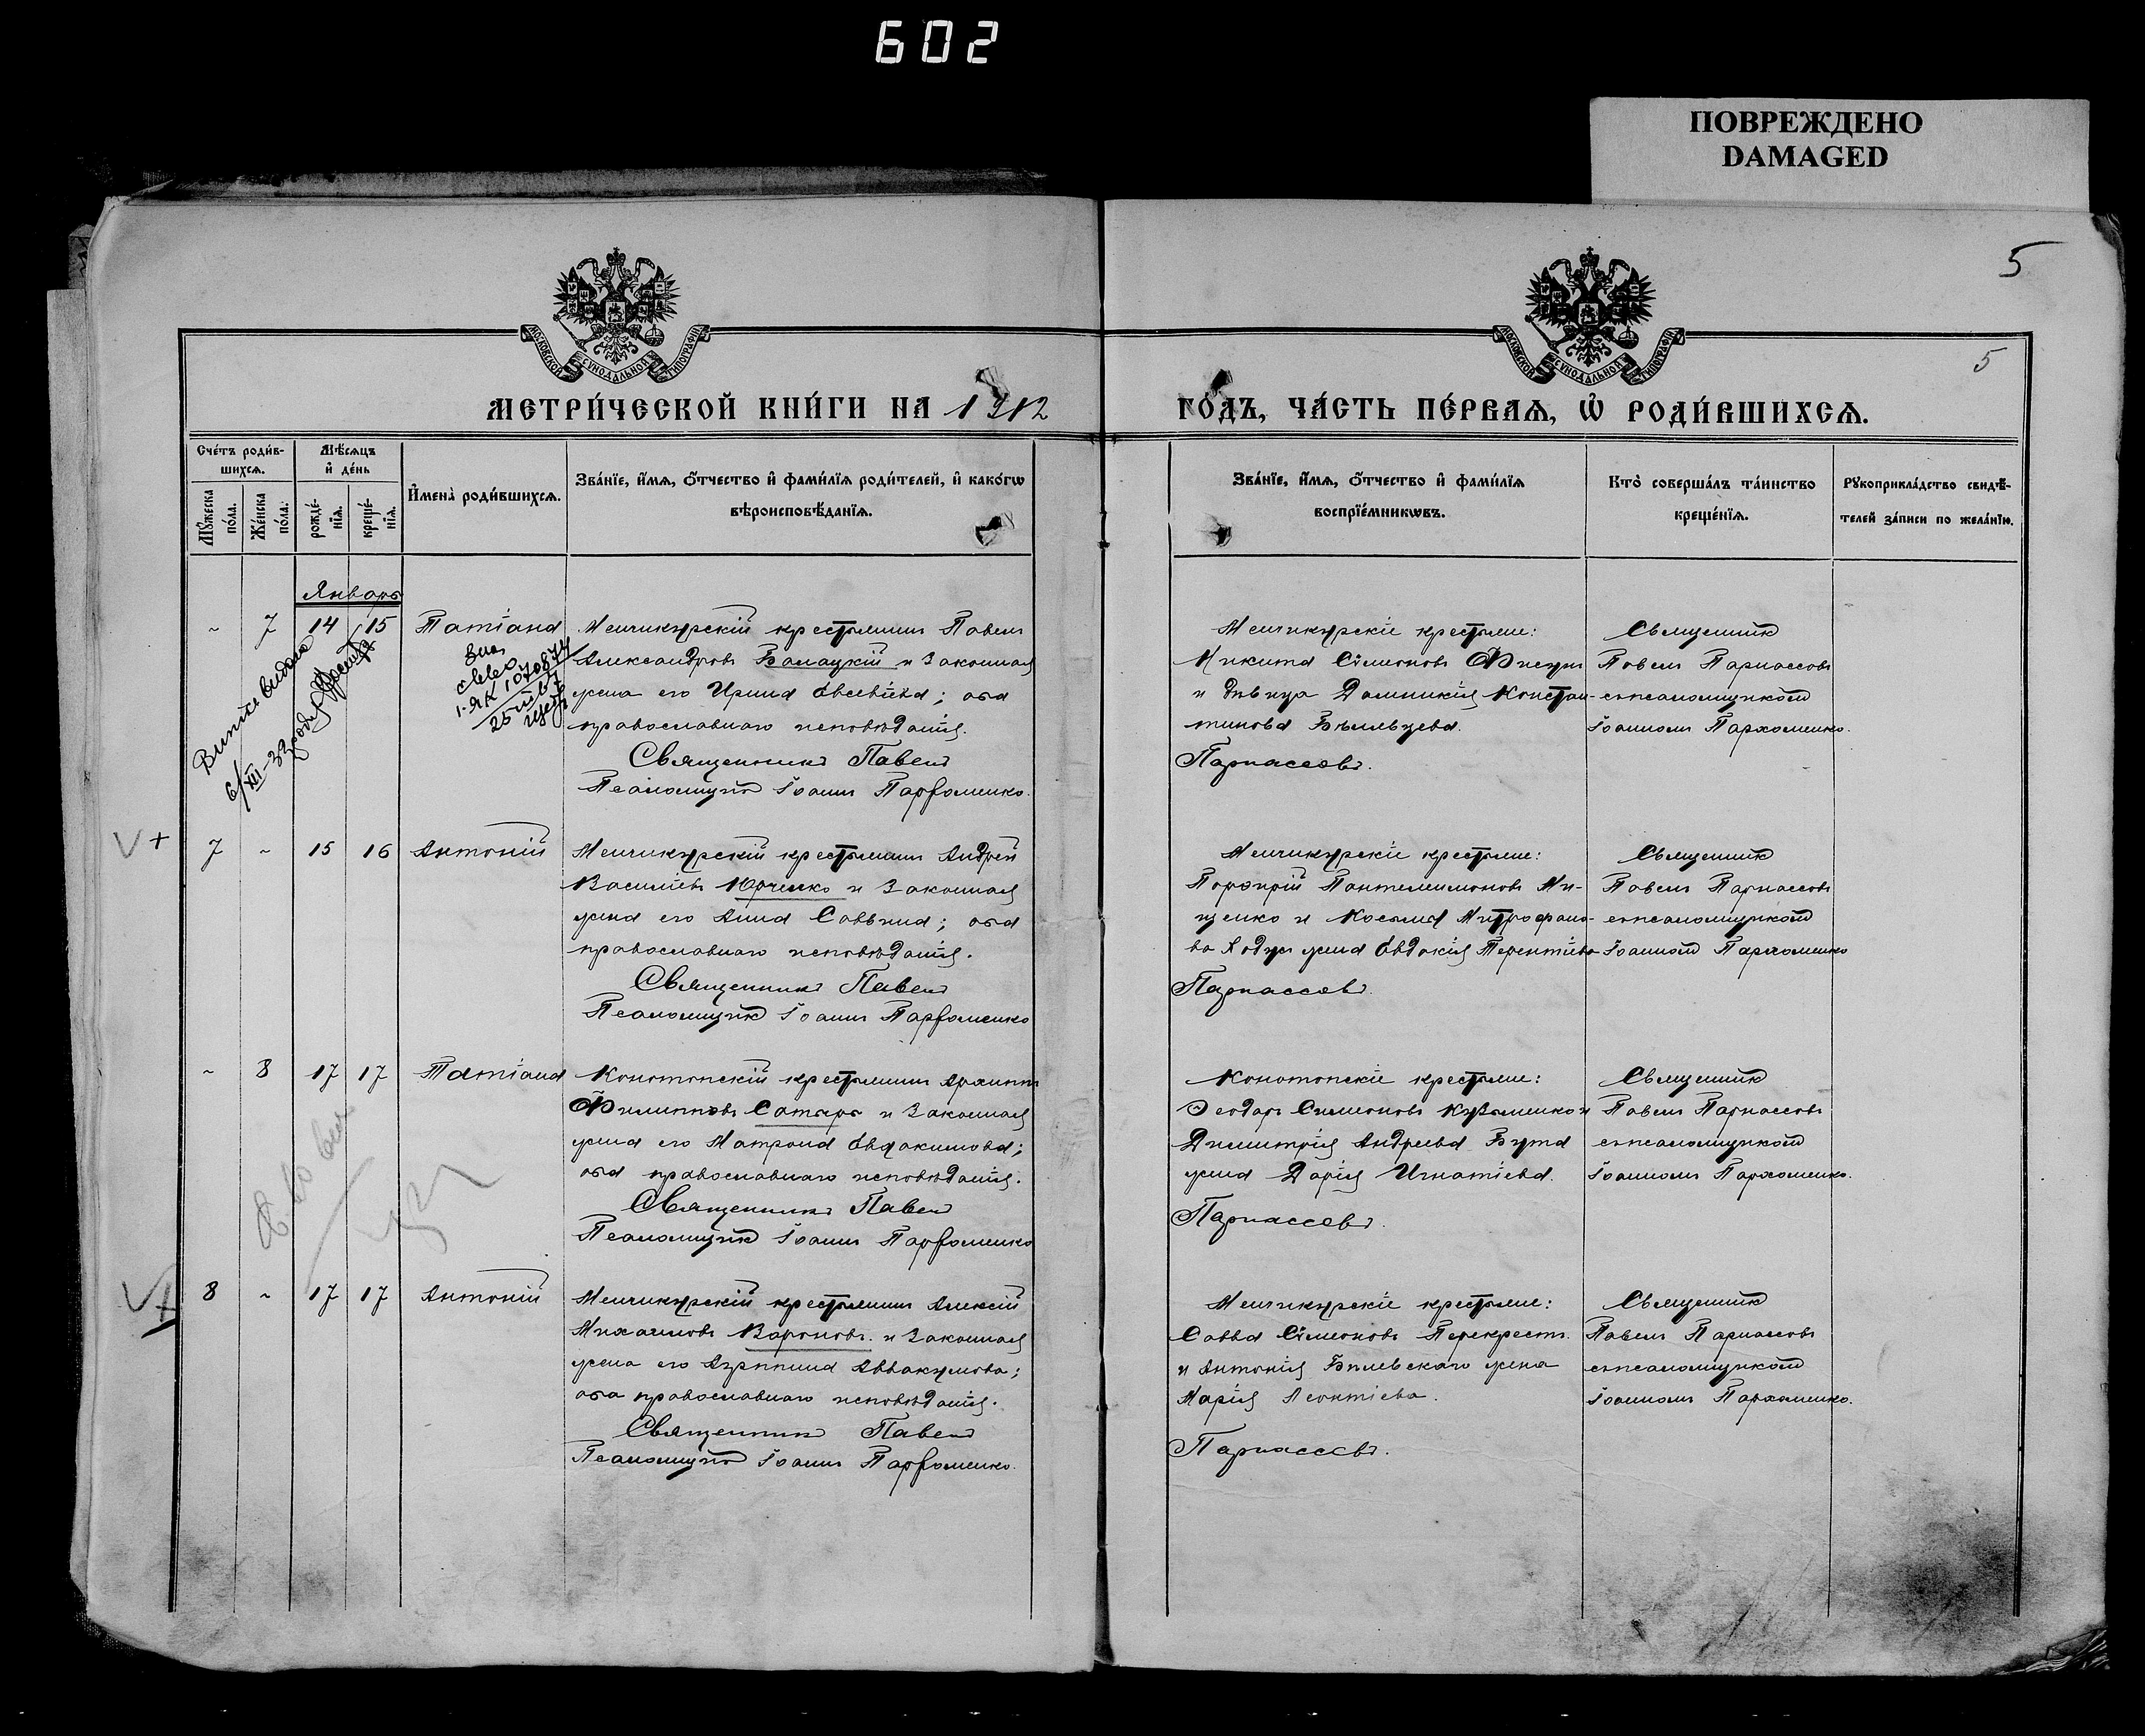 602
ПОВРЕЖДЕНО
DAMAGED
5
5
МОСКОВСКОЙ СУНОДАЛЬНОЙ ТИПОГРАФІИ
МОСКОВСКОЙ СУНОДАЛЬНОЙ ТИПОГРАФІИ
МЕТРИ́ЧЕСКОЙ КНИ́ГИ НА 1912
ГО́ДЪ, ЧА́СТЬ ПЕ́РВАЯ, Ѡ҆ РОДИ́ВШИХСЯ.
Сче́тъ роди́в-
шихся.
Мѣ́сяцъ
и҆ де́нь
Мꙋ́жеска
по́ла.
Же́нска
по́ла.
рожде́-
нїя.
креще́-
нїя.
И҆мена̀ роди́вшихся.
Зва́нїе, и҆́мя, ѻ҆́тчество и҆ фами́лїя роди́телей, и҆ како́гѡ
вѣроисповѣ́данїя.
Зва́нїе, и҆́мя, ѻ҆́тчество и҆ фами́лїя
воспрїе́мникѡвъ.
Кто̀ соверша́лъ та́инство
креще́нїя.
Рꙋкоприкла́дство свидѣ́-
телей за́писи по жела́нїю.
Январь
~ 7 14 15 Татіана
Менчикурскій крестьянинъ Павелъ
Александровъ Балацкій и законная
жена его Ирина Евсевіева; оба
православнаго исповѣданія.
Священникъ Павелъ
Псаломщикъ Іоаннъ Пархоменко.
Менчикурскіе крестьяне:
Никита Симеоновъ
и дѣвица Домникія Констан-
тинова Бѣльцева.
Парнассовъ.
Священникъ
Павелъ Парнассовъ
съ псаломщикомъ
Іоанномъ Пархоменко.
1-ЯК 1070874
7 ~ 15 16 Антоній
Менчикурскій крестьянинъ Андрей
Василіевъ Юрченко и законная
жена его Анна Саввина; оба
православнаго исповѣданія.
Священникъ Павелъ
Псаломщикъ Іоаннъ Пархоменко
Менчикурскіе крестьяне:
Порфирій Пантелеимоновъ Ми-
щенко и Косьмы Митрофано-
ва жена Евдокія Терентіева
Парнассовъ.
Священникъ
Павелъ Парнассовъ
съ псаломщикомъ
Іоанномъ Пархоменко
~ 8 17 17 Татіана
Конотопскій крестьянинъ Архиппъ
Филипповъ Сатыръ и законная
жена его Матрона Евдокимова;
оба православнаго исповѣданія.
Священникъ Павелъ
Псаломщикъ Іоаннъ Пархоменко
Конотопскіе крестьяне:
Ѳеодоръ Симеоновъ Кузьменко и
Димитрія Андреева Бута
жена Дарія Игнатіева.
Парнассовъ.
Священникъ
Павелъ Парнассовъ
съ псаломщикомъ
Іоанномъ Пархоменко.
8 ~ 17 17 Антоній
Менчикурскій крестьянинъ Алексій
Михаиловъ Вороновъ и законная
жена его Агриппина Аввакумова;
оба православнаго исповѣданія.
Священникъ Павелъ
Псаломщикъ Іоаннъ Пархоменко.
Менчикурскіе крестьяне:
Савва Симеоновъ Перекрестъ
и Антонія Билевскаго жена
Марія Леонтіева.
Парнассовъ.
Священникъ
Павелъ Парнассовъ
съ псаломщикомъ
Іоанномъ Пархоменко.